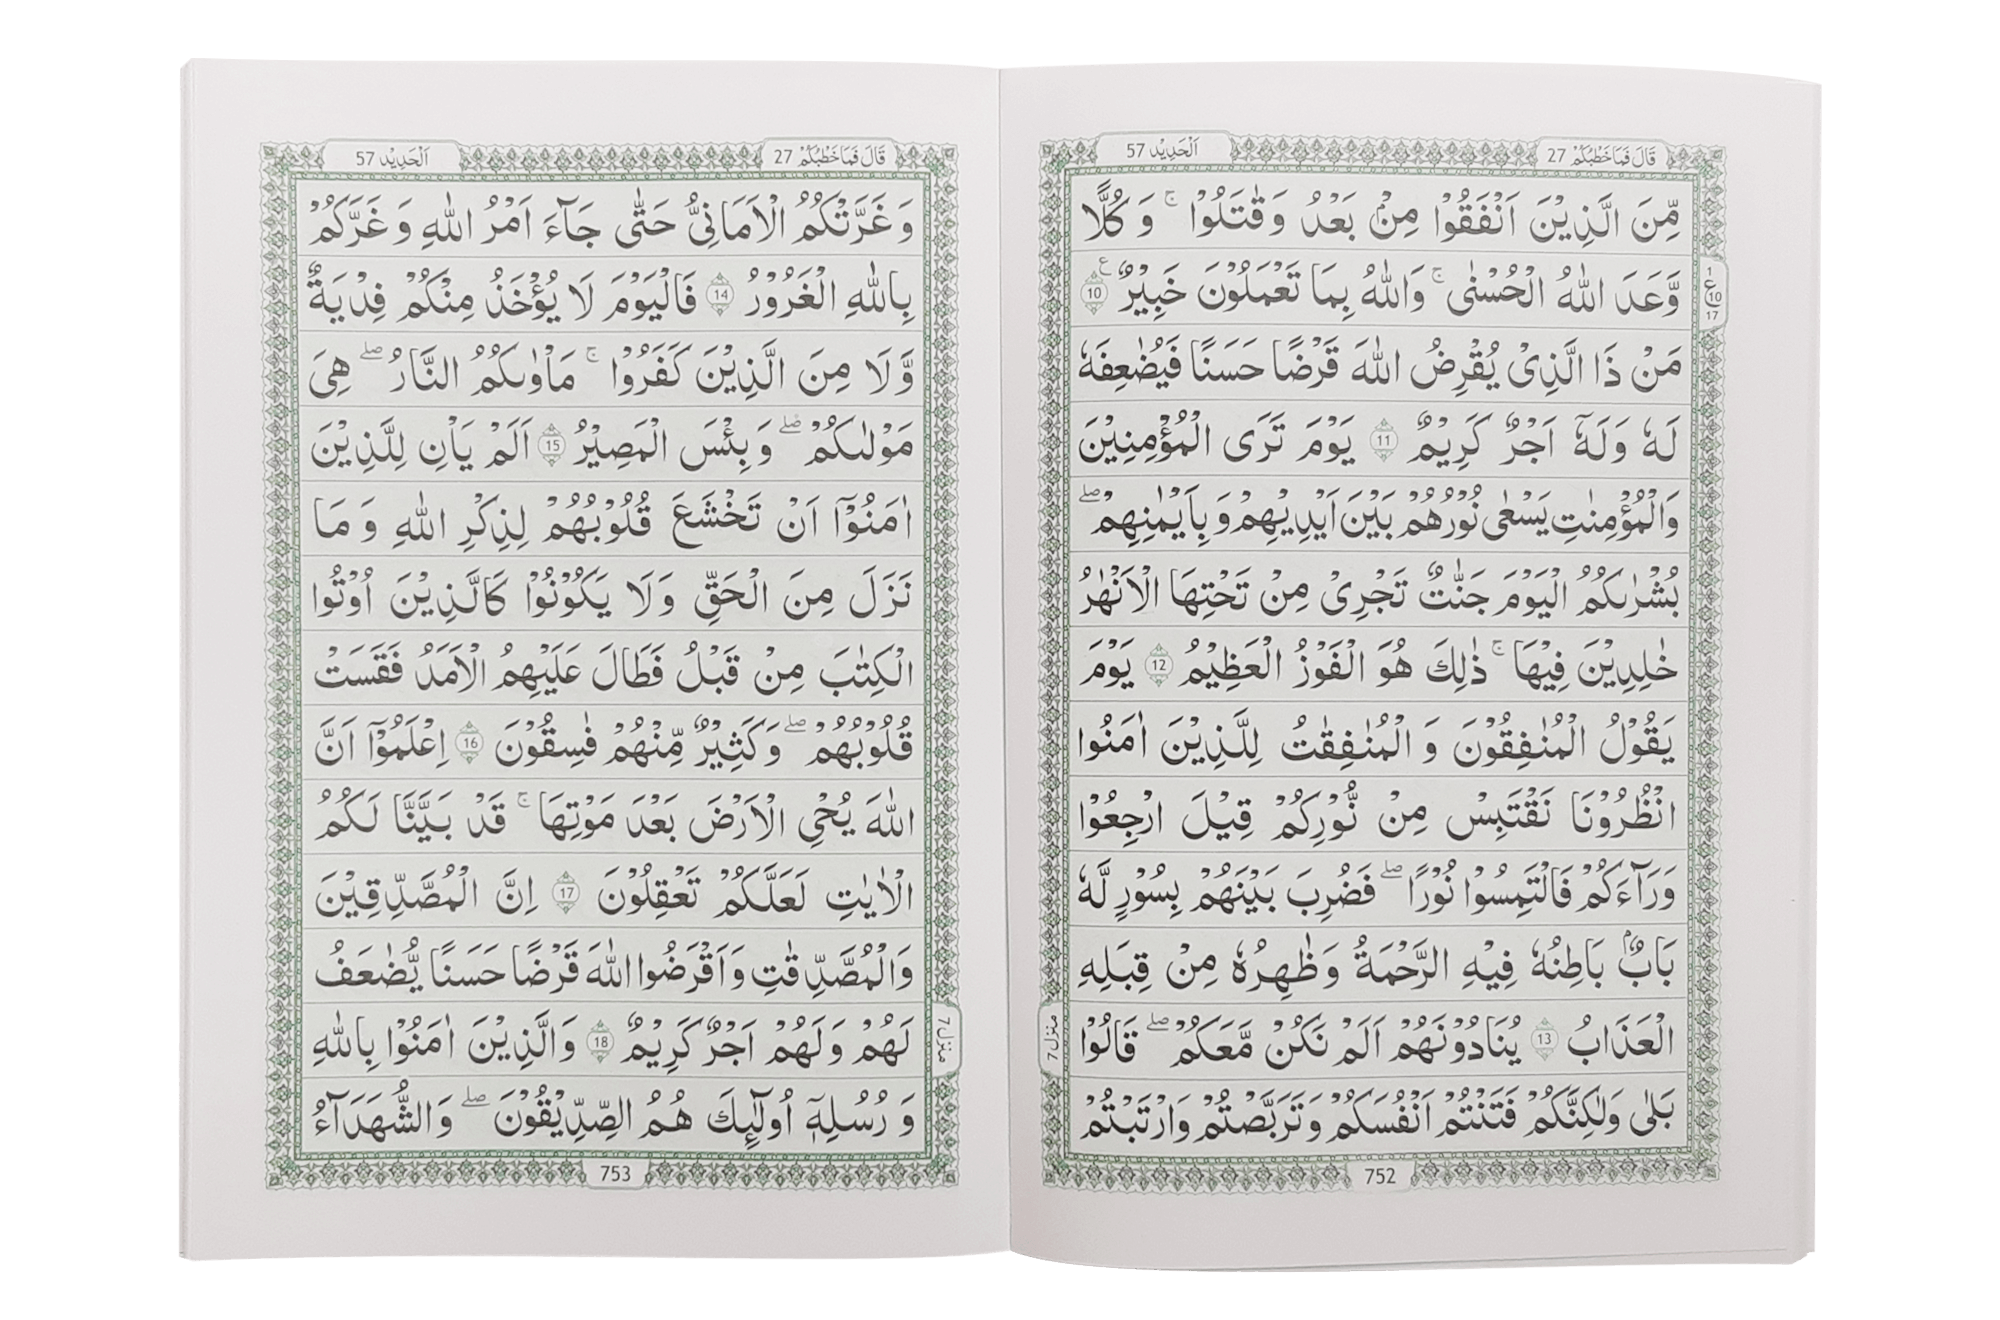 قَالَ فَمَا خَطْبُكُمْ 27
اَلْحَدِيْد 57
مِّنَ الَّذِيْنَ اَنْفَقُوْا مِنْۢ بَعْدُ وَقٰتَلُوْا ۚ وَ كُلًّا
وَّعَدَ اللّٰهُ الْحُسْنٰى ۚ وَاللّٰهُ بِمَا تَعْمَلُوْنَ خَبِيْرٌ ع 10
مَنْ ذَا الَّذِىْ يُقْرِضُ اللّٰهَ قَرْضًا حَسَنًا فَيُضٰعِفَهٗ
لَهٗ وَلَهٗٓ اَجْرٌ كَرِيْمٌ 11 يَوْمَ تَرَى الْمُؤْمِنِيْنَ
وَالْمُؤْمِنٰتِ يَسْعٰى نُوْرُهُمْ بَيْنَ اَيْدِيْهِمْ وَبِاَيْمٰنِهِمْ ۖ
بُشْرٰىكُمُ الْيَوْمَ جَنّٰتٌ تَجْرِىْ مِنْ تَحْتِهَا الْاَنْهٰرُ
خٰلِدِيْنَ فِيْهَا ۚ ذٰلِكَ هُوَ الْفَوْزُ الْعَظِيْمُ 12 يَوْمَ
يَقُوْلُ الْمُنٰفِقُوْنَ وَ الْمُنٰفِقٰتُ لِلَّذِيْنَ اٰمَنُوا
انْظُرُوْنَا نَقْتَبِسْ مِنْ نُّوْرِكُمْ قِيْلَ ارْجِعُوْا
وَرَآءَكُمْ فَالْتَمِسُوْا نُوْرًا ۖ فَضُرِبَ بَيْنَهُمْ بِسُوْرٍ لَّهٗ
بَابٌۢ بَاطِنُهٗ فِيْهِ الرَّحْمَةُ وَظٰهِرُهٗ مِنْ قِبَلِهِ
الْعَذَابُ 13 يُنَادُوْنَهُمْ اَلَمْ نَكُنْ مَّعَكُمْ ۖ قَالُوْا
بَلٰى وَلٰكِنَّكُمْ فَتَنْتُمْ اَنْفُسَكُمْ وَتَرَبَّصْتُمْ وَارْتَبْتُمْ
1
ع
10
17
منزل 7
752
قَالَ فَمَا خَطْبُكُمْ 27
اَلْحَدِيْد 57
وَ غَرَّتْكُمُ الْاَمَانِىُّ حَتّٰى جَآءَ اَمْرُ اللّٰهِ وَ غَرَّكُمْ
بِاللّٰهِ الْغَرُوْرُ 14 فَالْيَوْمَ لَا يُؤْخَذُ مِنْكُمْ فِدْيَةٌ
وَّلَا مِنَ الَّذِيْنَ كَفَرُوْا ۚ مَاْوٰىكُمُ النَّارُ ۖ هِىَ
مَوْلٰىكُمْ ۖ وَ بِئْسَ الْمَصِيْرُ 15 اَلَمْ يَاْنِ لِلَّذِيْنَ
اٰمَنُوْٓا اَنْ تَخْشَعَ قُلُوْبُهُمْ لِذِكْرِ اللّٰهِ وَ مَا
نَزَلَ مِنَ الْحَقِّ وَلَا يَكُوْنُوْا كَالَّذِيْنَ اُوْتُوا
الْكِتٰبَ مِنْ قَبْلُ فَطَالَ عَلَيْهِمُ الْاَمَدُ فَقَسَتْ
قُلُوْبُهُمْ ۖ وَكَثِيْرٌ مِّنْهُمْ فٰسِقُوْنَ 16 اِعْلَمُوْٓا اَنَّ
اللّٰهَ يُحْىِ الْاَرْضَ بَعْدَ مَوْتِهَا ۚ قَدْ بَيَّنَّا لَكُمُ
الْاٰيٰتِ لَعَلَّكُمْ تَعْقِلُوْنَ 17 اِنَّ الْمُصَّدِّقِيْنَ
وَالْمُصَّدِّقٰتِ وَاَقْرَضُوا اللّٰهَ قَرْضًا حَسَنًا يُّضٰعَفُ
لَهُمْ وَلَهُمْ اَجْرٌ كَرِيْمٌ 18 وَالَّذِيْنَ اٰمَنُوْا بِاللّٰهِ
وَ رُسُلِهٖٓ اُولٰٓئِكَ هُمُ الصِّدِّيْقُوْنَ ۖ وَالشُّهَدَآءُ
منزل 7
753